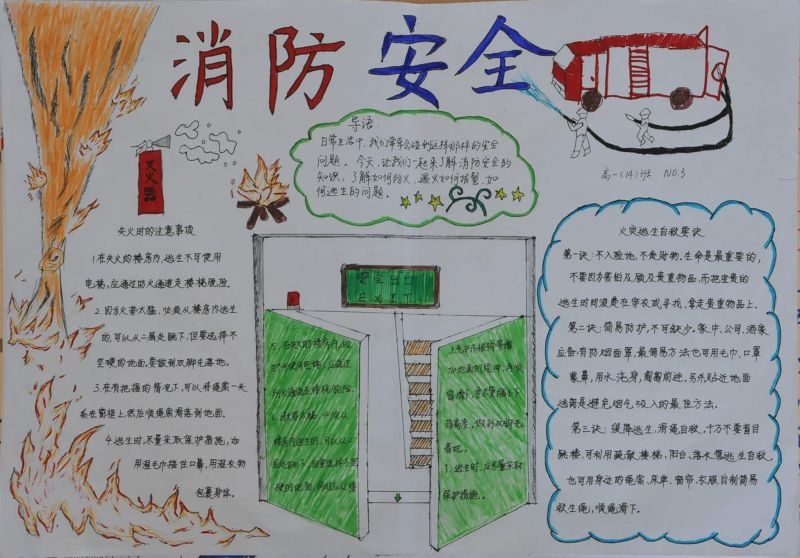 消防安全
导语:
日常生活中,我们常常会碰到这样那样的安全
问题。今天,让我们一起来了解消防安全的
知识,了解如何防火,遇火如何报警,如
何逃生的问题。
高一(14)班 NO.3
灭火器
失火时的注意事项
1.在失火的楼房内,逃生不可使用
电梯,应通过防火通道走楼梯脱险.
2.因为火势太猛,必须从楼房内逃生
的,可以从二层处跳下,但要选择不
坚硬的地面,要做到双脚先落地.
3.在有把握的情况下,可以将绳索一头
系在窗框上,然后顺绳索滑落到地面.
4.逃生时,尽量采取保护措施,如
用湿毛巾捂住口鼻,用湿衣物
包裹身体.
安全出口
EXIT
5、在失火的楼房内,逃
防火通道走楼梯脱险.
保护措施。
火灾逃生自救要诀
第一诀:不入险地,不贪财物.生命是最重要的,
不要因为害怕及顾及贵重物品,而把宝贵的
逃生时间浪费在穿衣或寻找、拿走贵重物品上.
第二诀:简易防护,不可缺少.家中、公司、酒家
应备有防烟面罩,最简易方法也可用毛巾、口罩
蒙鼻,用水浇身,匍匐前进.另外贴近地面
逃离是避免烟气吸入的最佳方法.
第三诀:缓降逃生,滑绳自救.千万不要盲目
跳楼,可利用疏散楼梯、阳台、落水管逃生自救.
也可用身边的绳索、床单、窗帘、衣服自制简易
救生绳,顺绳滑下.